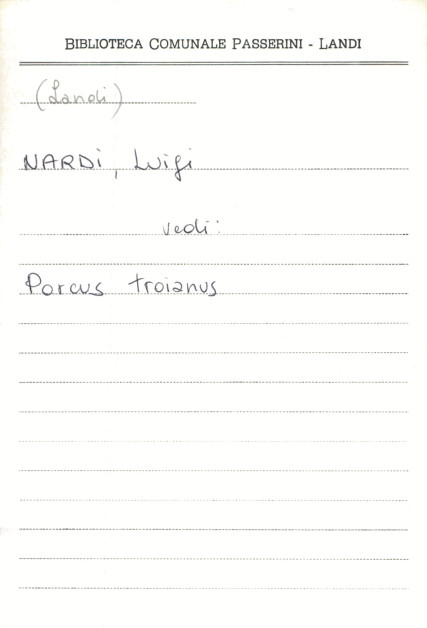 BIBLIOTECA COMUNALE PASSERINI - LANDI
(Landi)
NARDI, Luigi
vedi:
Porcus troianus